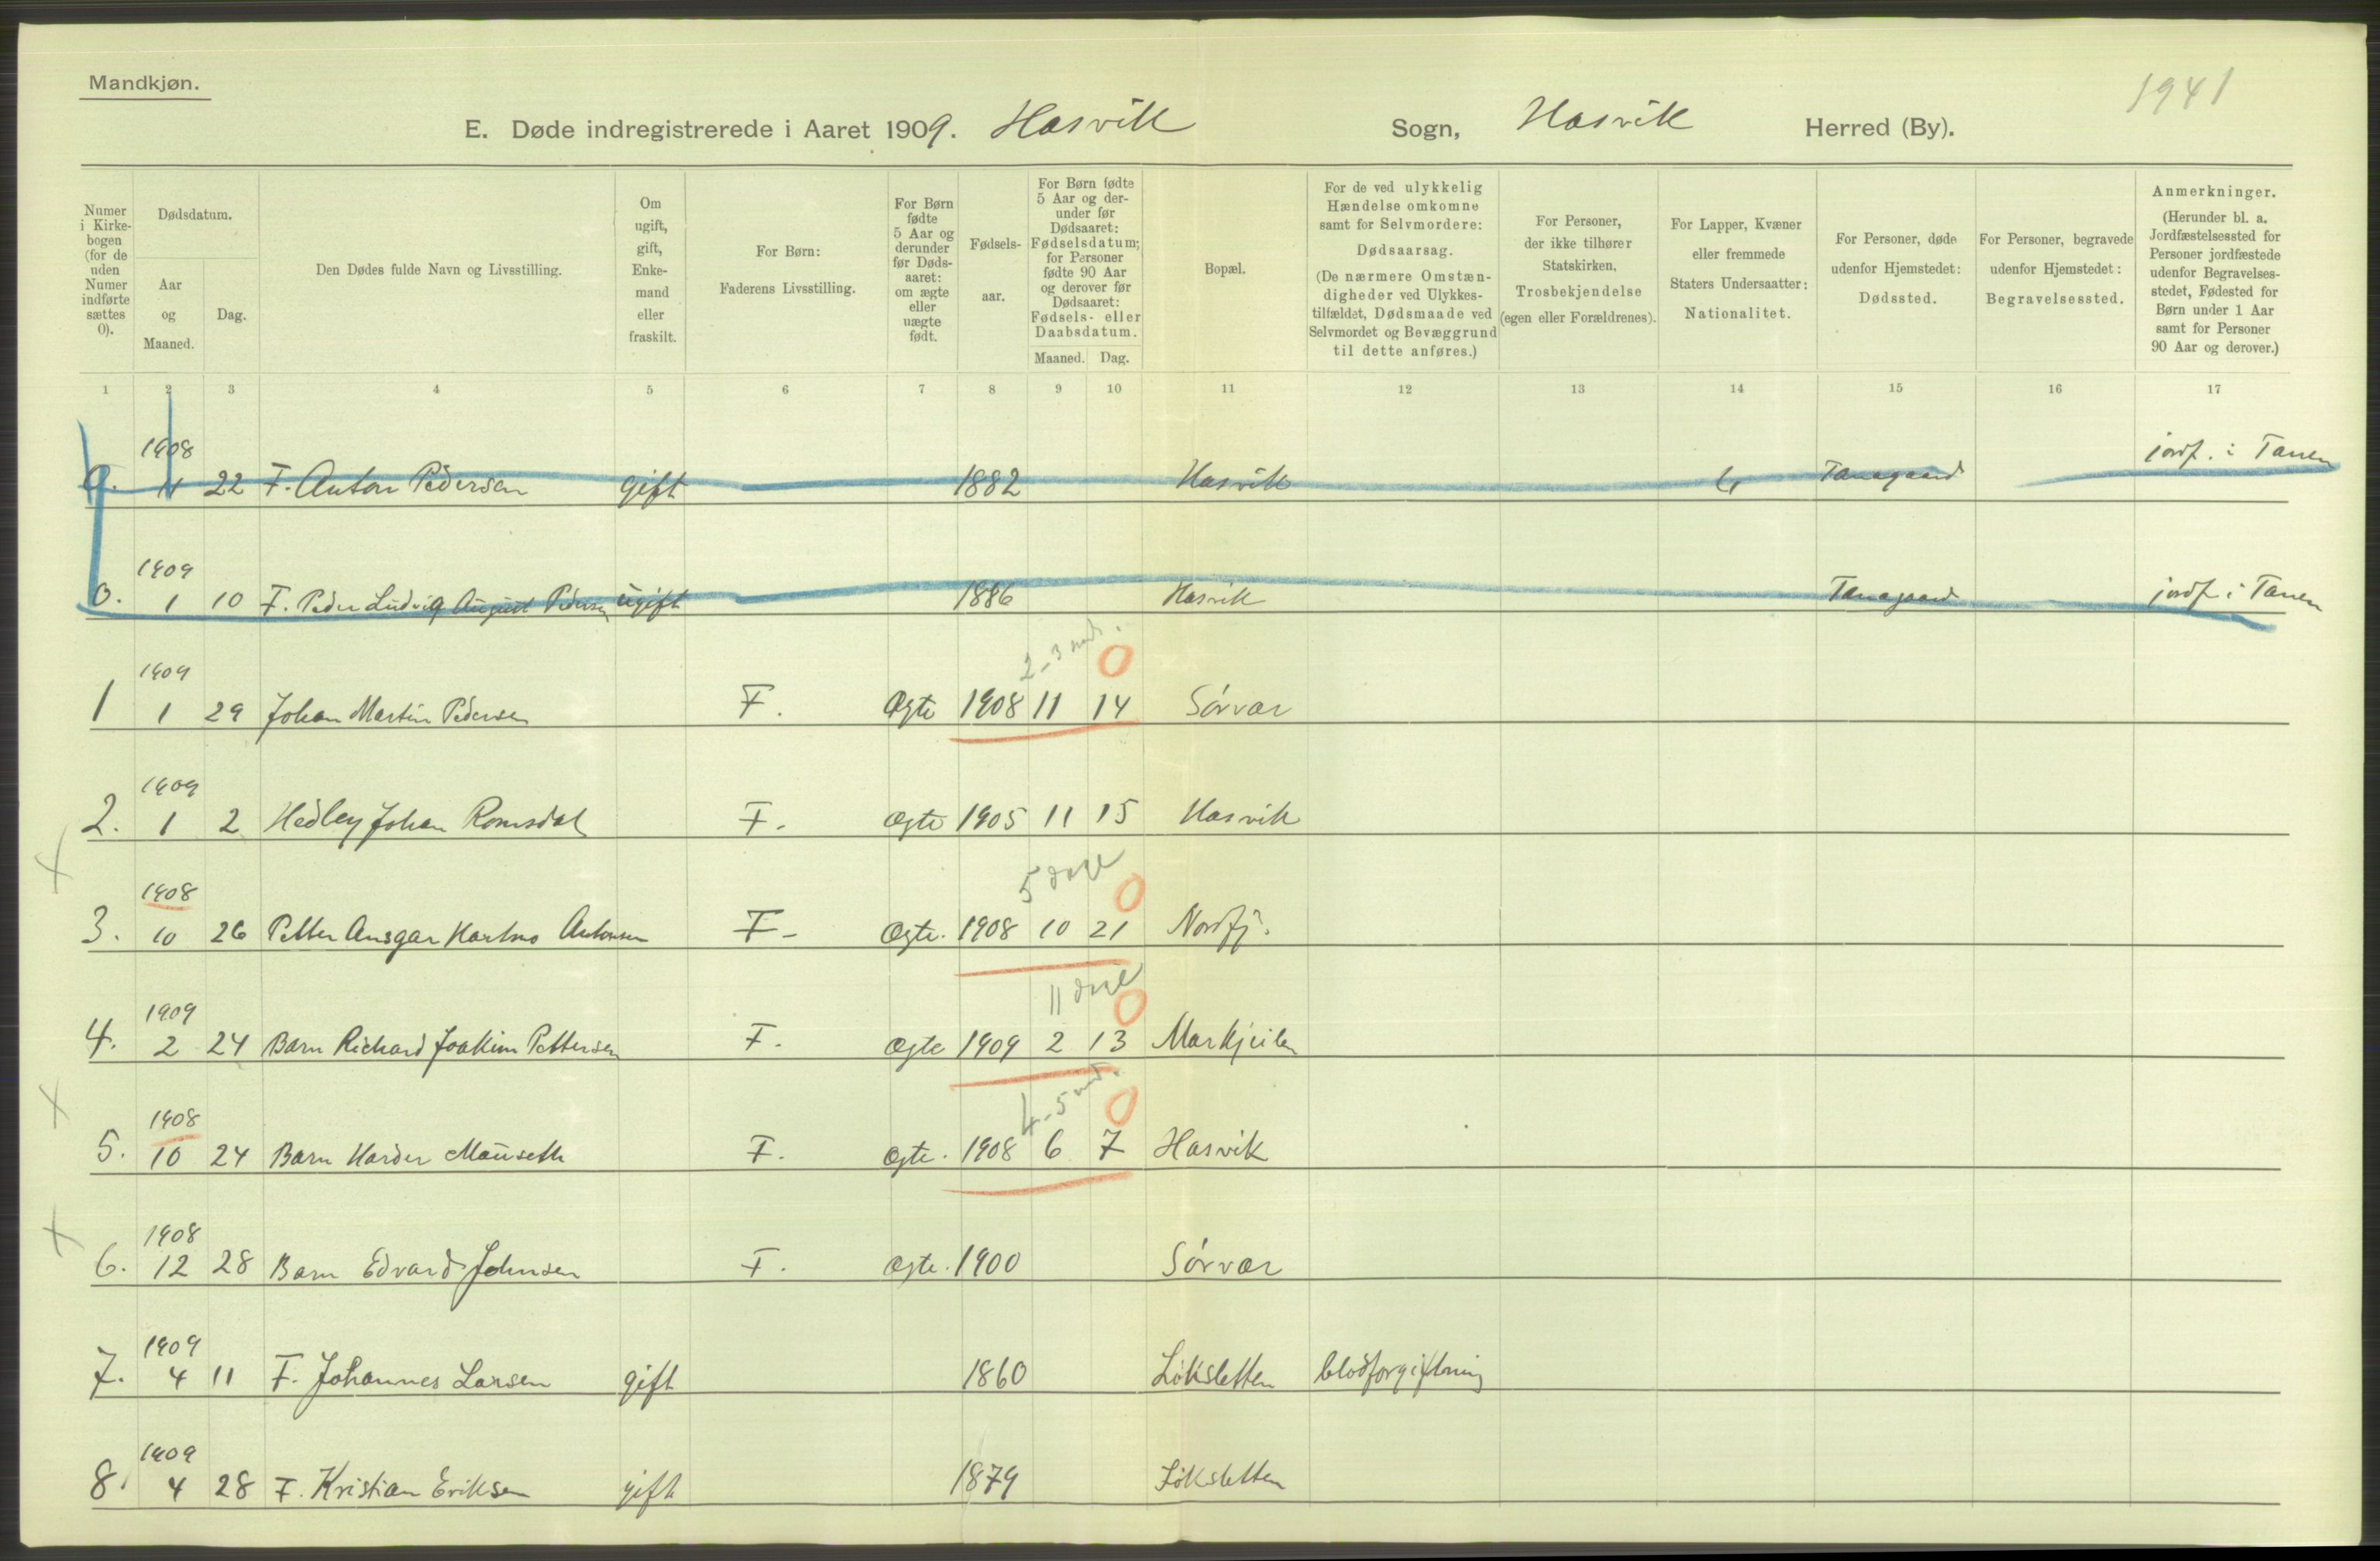 Mandkjøn.
1941
E. Døde indregistrerede i Aaret 1909. Hasvik Sogn, Hasvik Herred (By).
Numer i Kirkebogen (for de uden Numer indførte sættes 0).
Dødsdatum.
Aar og Maaned.
Dag.
Den Dødes fulde Navn og Livsstilling.
Om ugift, gift, Enkemand eller fraskilt.
For Børn: Faderens Livsstilling.
For Børn fødte 5 Aar og derunder før Dødsaaret: om ægte eller uægte født.
Fødselsaar.
For Børn fødte 5 Aar og derunder før Dødsaaret: Fødselsdatum; for Personer fødte 90 Aar og derover før Dødsaaret: Fødsels- eller Daabsdatum.
Maaned. Dag.
Bopæl.
For de ved ulykkelig Hændelse omkomne samt for Selvmordere: Dødsaarsag. (De nærmere Omstændigheder ved Ulykkestilfældet, Dødsmaade ved Selvmordet og Bevæggrund til dette anføres.)
For Personer, der ikke tilhører Statskirken, Trosbekjendelse (egen eller Forældrenes).
For Lapper, Kvæner eller fremmede Staters Undersaatter: Nationalitet.
For Personer, døde udenfor Hjemstedet: Dødssted.
For Personer, begravede udenfor Hjemstedet: Begravelsessted.
Anmerkninger. (Herunder bl. a. Jordfæstelsessted for Personer jordfæstede udenfor Begravelsesstedet, Fødested for Børn under 1 Aar samt for Personer 90 Aar og derover.)
1 2 3 4 5 6 7 8 9 10 11 12 13 14 15 16 17
1908
11 22 F. Anton Pedersen gift 1882 Hasvik Tanagaard jordf. i Tanen
1909
0. 1 10 F. Peder Ludvig August Pedersen ugift 1886 Hasvik Tanagaard jordf i Tanen
2-3 md. 0
1909
1 1 29 Johan Martin Pedersen F. Ægte 1908 11 14 Sörvær
1909
2. 1 2 Hedley Johan Romsdal F. Ægte 1905 11 15 Hasvik
5 dage 0
1908
3. 10 26 Petter Ansgar Antonsen F. Ægte. 1908 10 21 Nordfj.
11 dage 0
1909
4. 2 24 Barn Richard Joakim Pettersen F. Ægte 1909 2 13
4-5 md. 0
1908
5. 10 24 Barn Harder Mauseth F. Ægte. 1908 6 7 Hasvik
1908
6. 12 28 Barn Edvard Johnsen F. Ægte. 1900 Sörvær
1909
7. 4 11 F. Johannes Larsen gift 1860 Löksletten blodforgiftning
1909
8. 4 28 F. Kristian Eriksen gift 1879 Löksletten